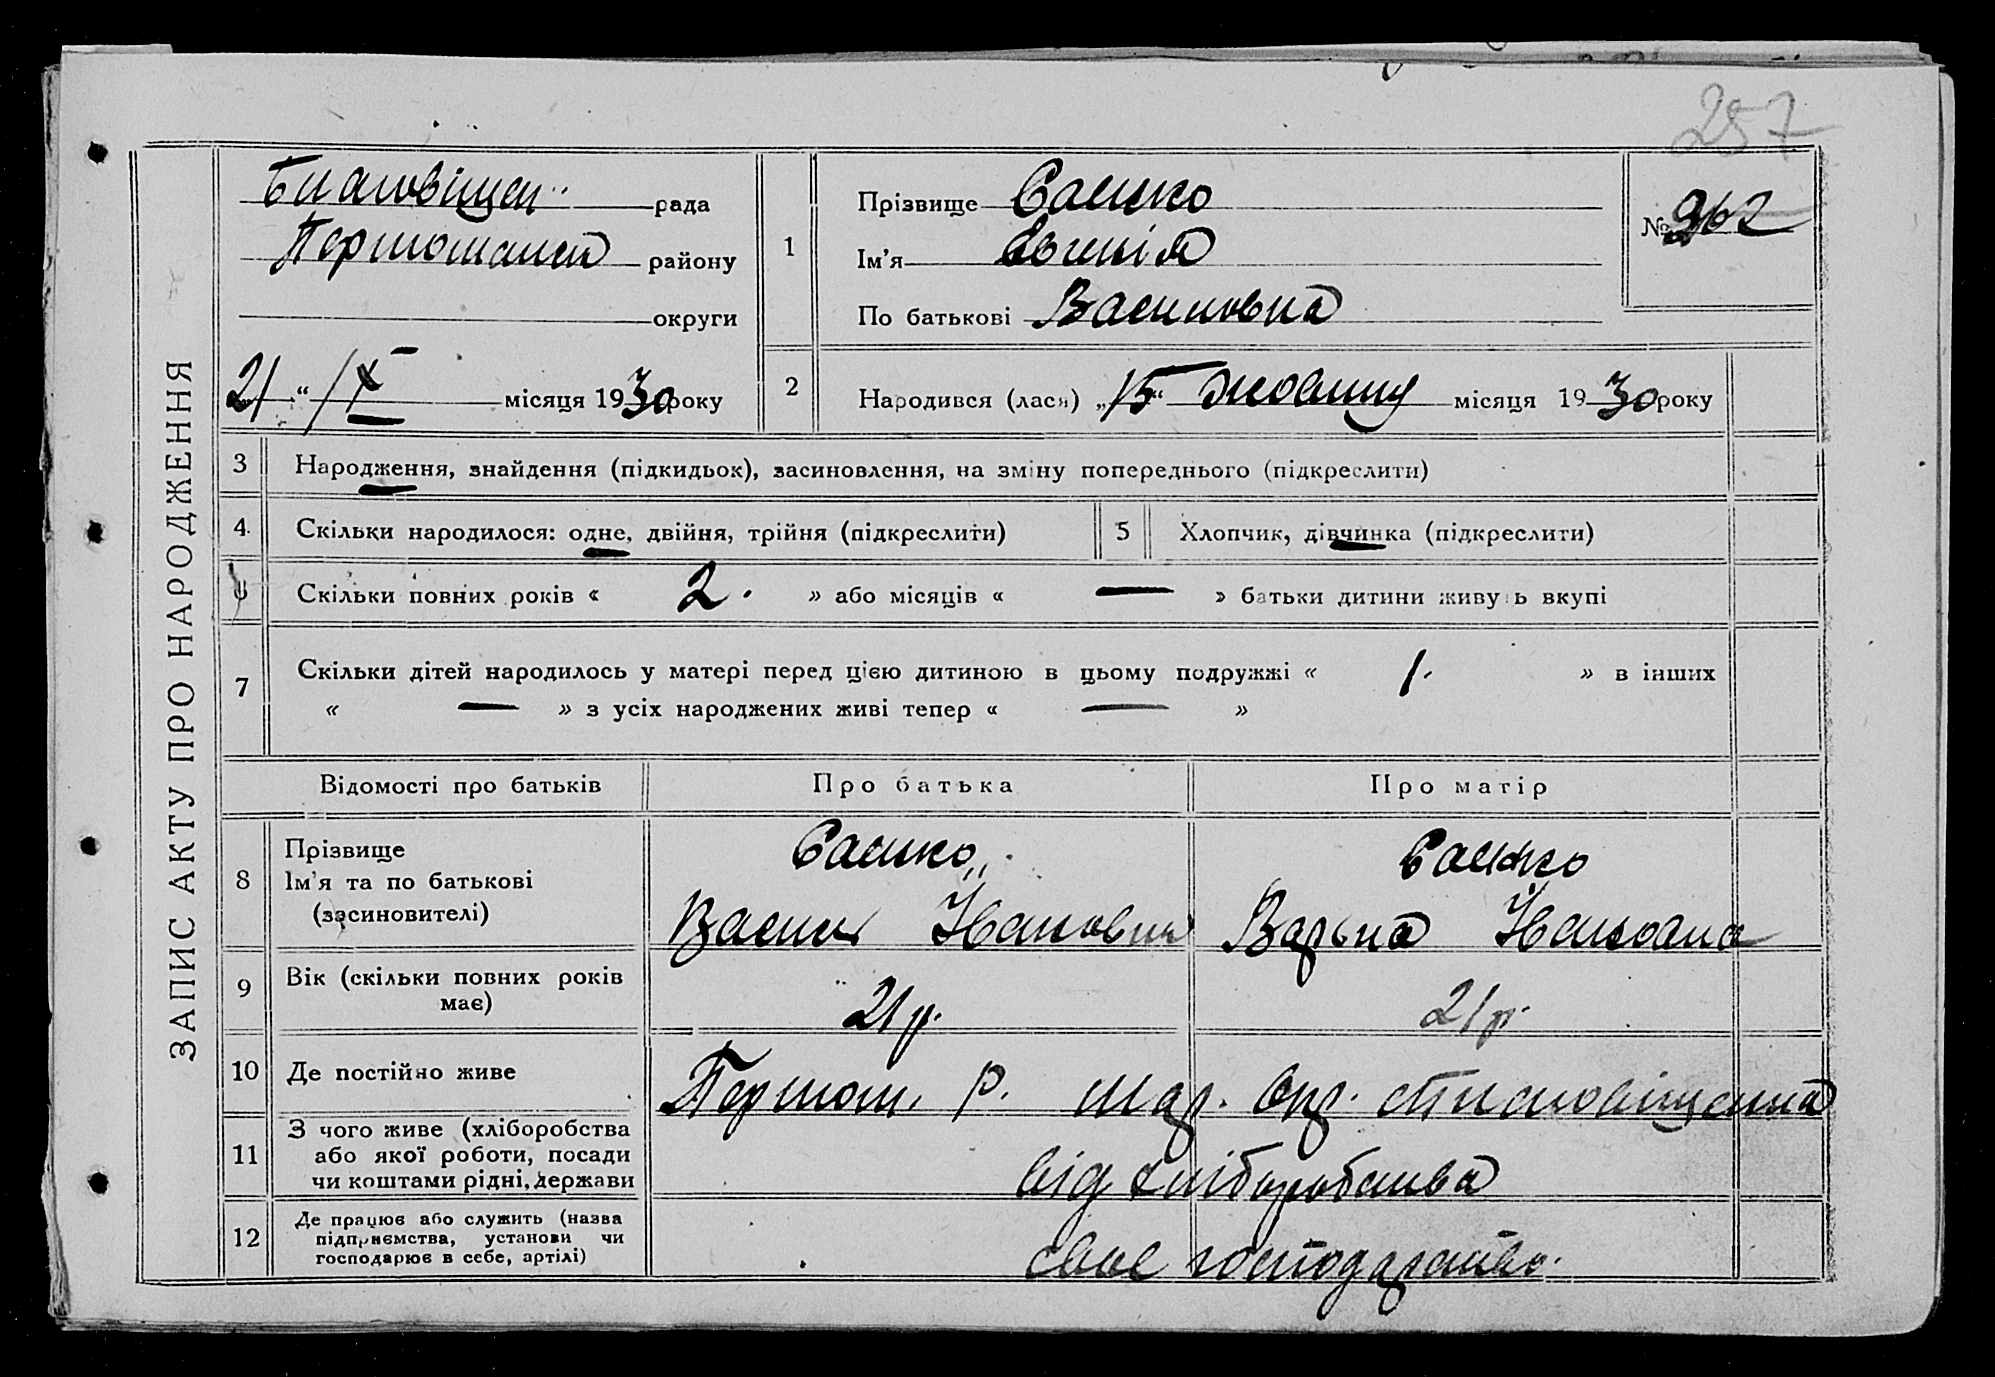 257
ЗАПИС АКТУ ПРО НАРОДЖЕННЯ
Благовіщен рада
району
округи
21 " / X місяця 1930 року
1
Прізвище Сашко
Ім'я Євгенія
По батькові Василовна
№ 362
2
Народився (лася) „15“ жовтня місяця 1930 року
3 Народження, знайдення (підкидьок), засиновлення, на зміну попереднього (підкреслити)
4. Скільки народилося: одне, двійня, трійня (підкреслити) 5 Хлопчик, дівчинка (підкреслити)
Скільки повних років « 2. » або місяців « — » батьки дитини живуть вкупі
7 Скільки дітей народилось у матері перед цією дитиною в цьому подружжі « 1. » в інших
« — » з усіх народжених живі тепер « — »
Відомості про батьків Про батька Про матір
8 Прізвище Ім'я та по батькові (засиновителі)
Сашко Сашко
Василь Іванович Варька Івановна
9 Вік (скільки повних років має) 21 р. 21 р.
10 Де постійно живе р. Мар. окр. ст Благовіщенка
11 З чого живе (хліборобства або якої роботи, посади чи коштами рідні, держави від хліборобства
12 Де працює або служить (назва підприємства, установи чи господарює в себе, артілі) своє господарство.